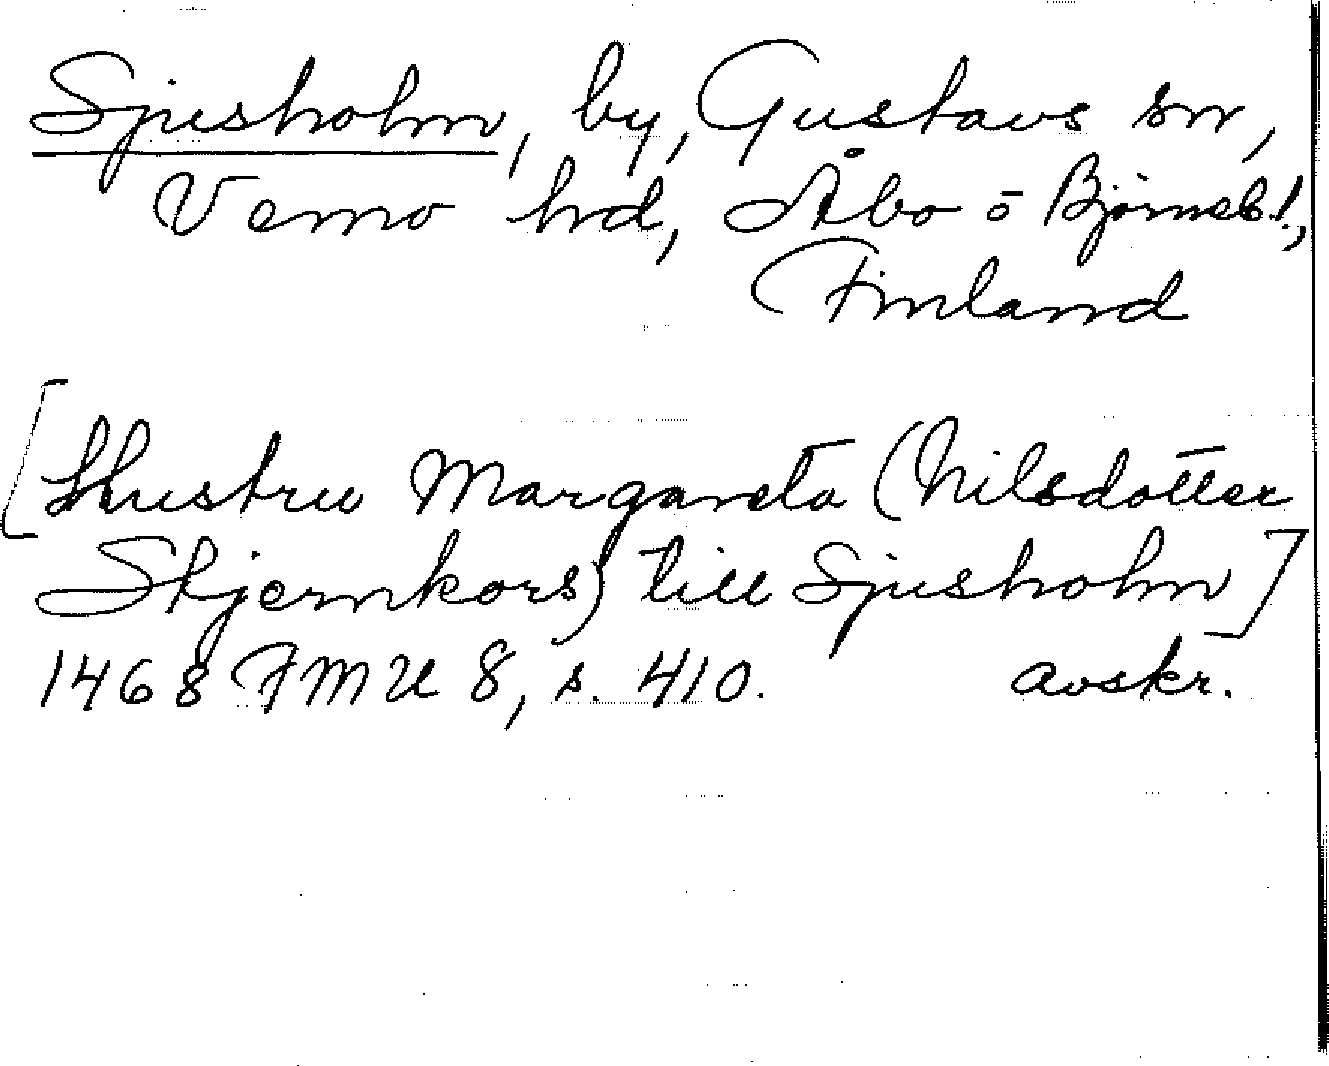 Sjusholm, by, Gustavs sn,
Vemo hd, Åbo o Björneb.l.,
Finland
[Hustru Margareta (Nilsdotter
Stjernkors) till Sjusholm]
1468 FMU 8, s. 410. avskr.